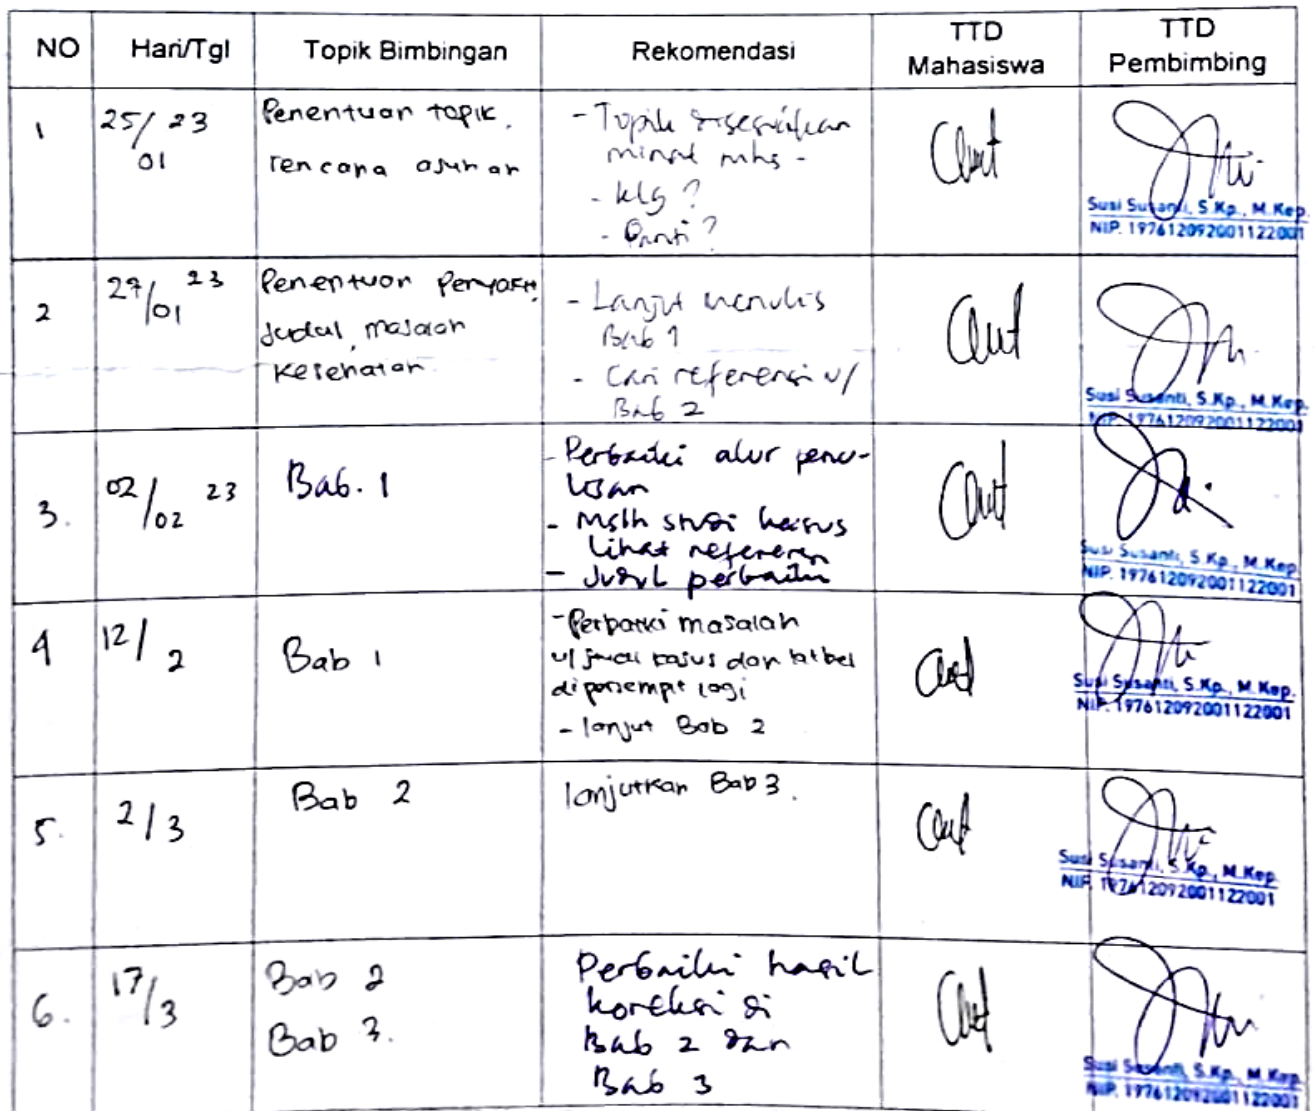 NO Hari/Tgl Topik Bimbingan Rekomendasi TTD Mahasiswa TTD Pembimbing
1 25/01 23
Penentuan topik,
rencana asuhan
- Topik disesuaikan
minat mhs -
- klg ?
- Panti ?
Susi Susanti, S.Kp., M.Kep.
NIP. 197612092001122001
2 27/01 23
Penentuan Penyakit,
Judul, masalah
Kesehatan
- Lanjut menulis
Bab 1
- Cari referensi u/
Bab 2
Susi Susanti, S.Kp., M.Kep.
NIP. 197612092001122001
3. 02/02 23
Bab. 1
- Perbaiki alur penu-
lisan
- Mslh studi kasus
lihat referensi
- Judul perbaiki
Susi Susanti, S.Kp., M.Kep.
NIP. 197612092001122001
4 12/2
Bab 1
- Perbaiki masalah
u/ studi kasus dan latbel
dipersempit lagi
- lanjut Bab 2
Susi Susanti, S.Kp., M.Kep.
NIP. 197612092001122001
5. 2/3
Bab 2
lanjutkan Bab 3.
Susi Susanti, S.Kp., M.Kep.
NIP. 197612092001122001
6. 17/3
Bab 2
Bab 3.
Perbaiki hasil
koreksi di
Bab 2 dan
Bab 3
Susi Susanti, S.Kp., M.Kep.
NIP. 197612092001122001